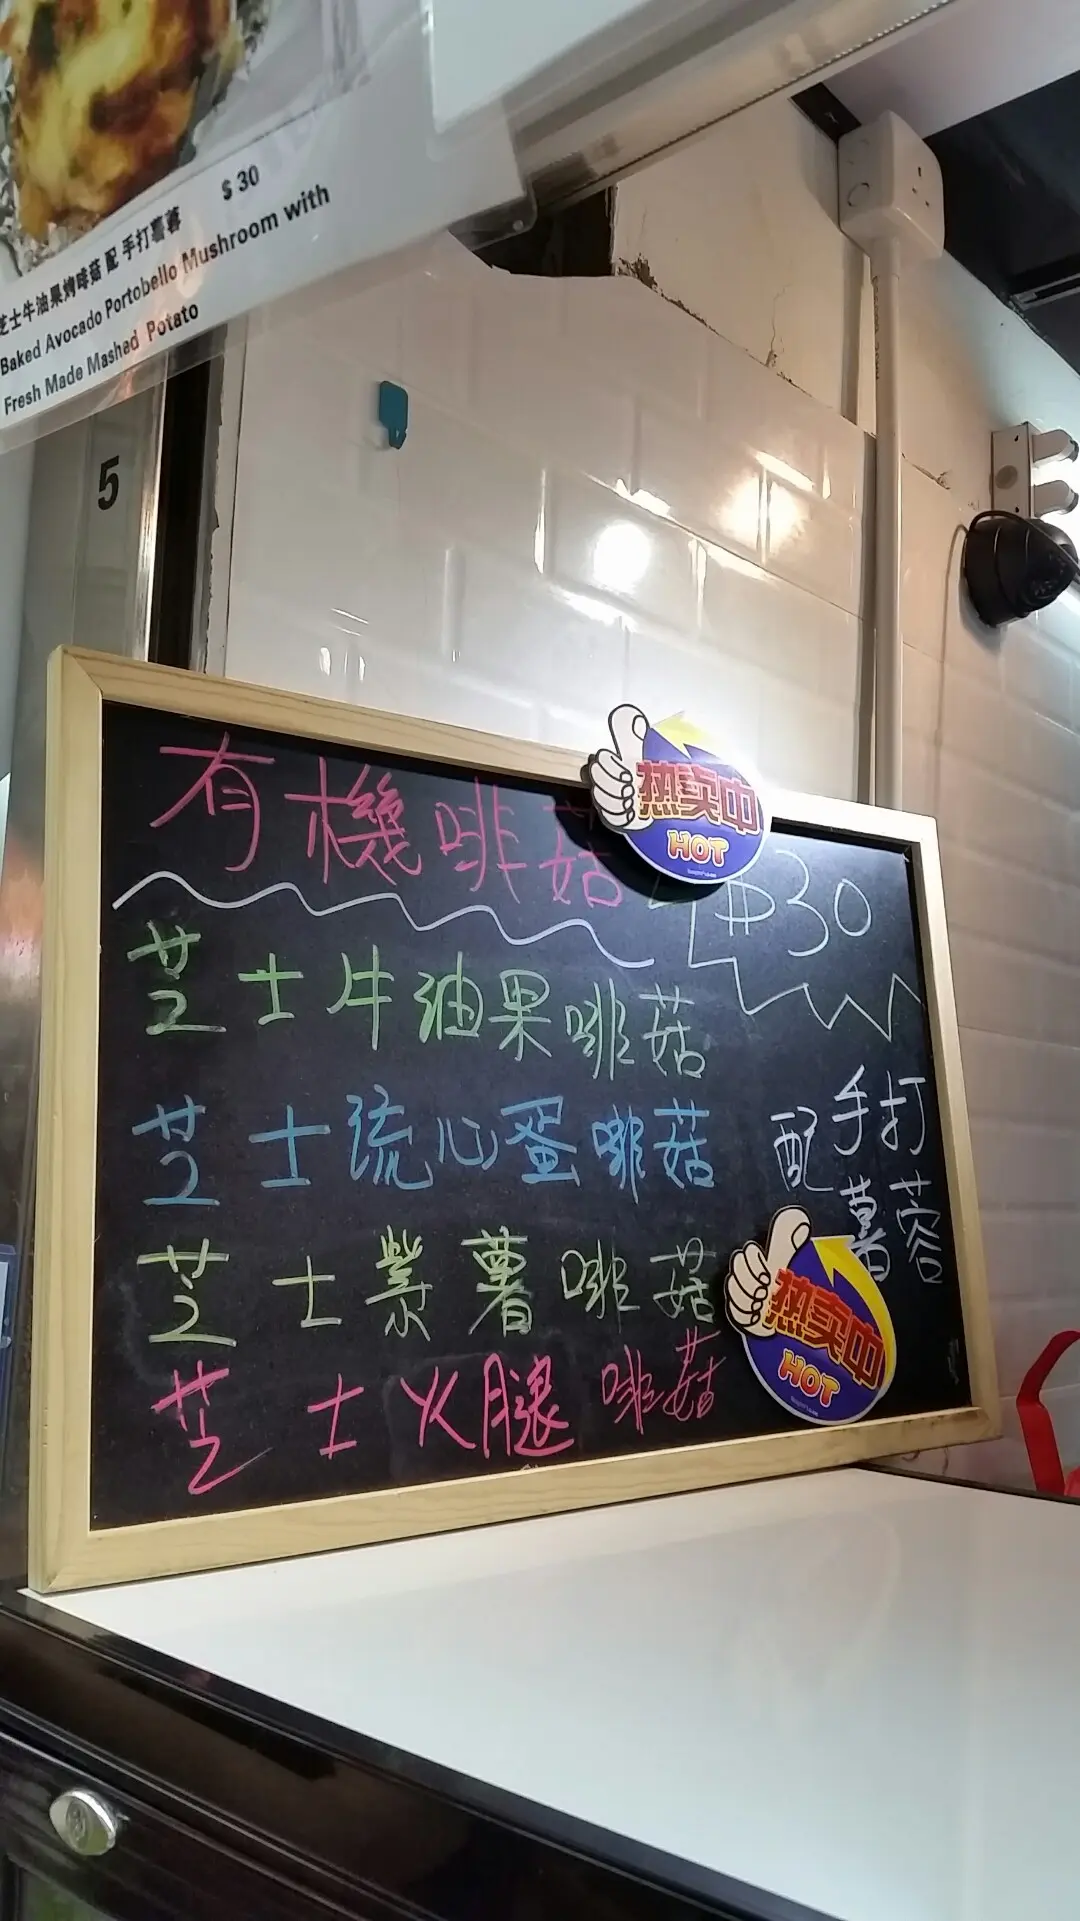 $30
芝士牛油果烤啡菇 配 手打薯蓉
Baked Avocado Portobello Mushroom with
Fresh Made Mashed Potato
5
有機啡菇
热卖中
HOT
$30
芝士牛油果啡菇
芝士流心蛋啡菇
芝士紫薯啡菇
芝士火腿啡菇
配手打
薯蓉
热卖中
HOT